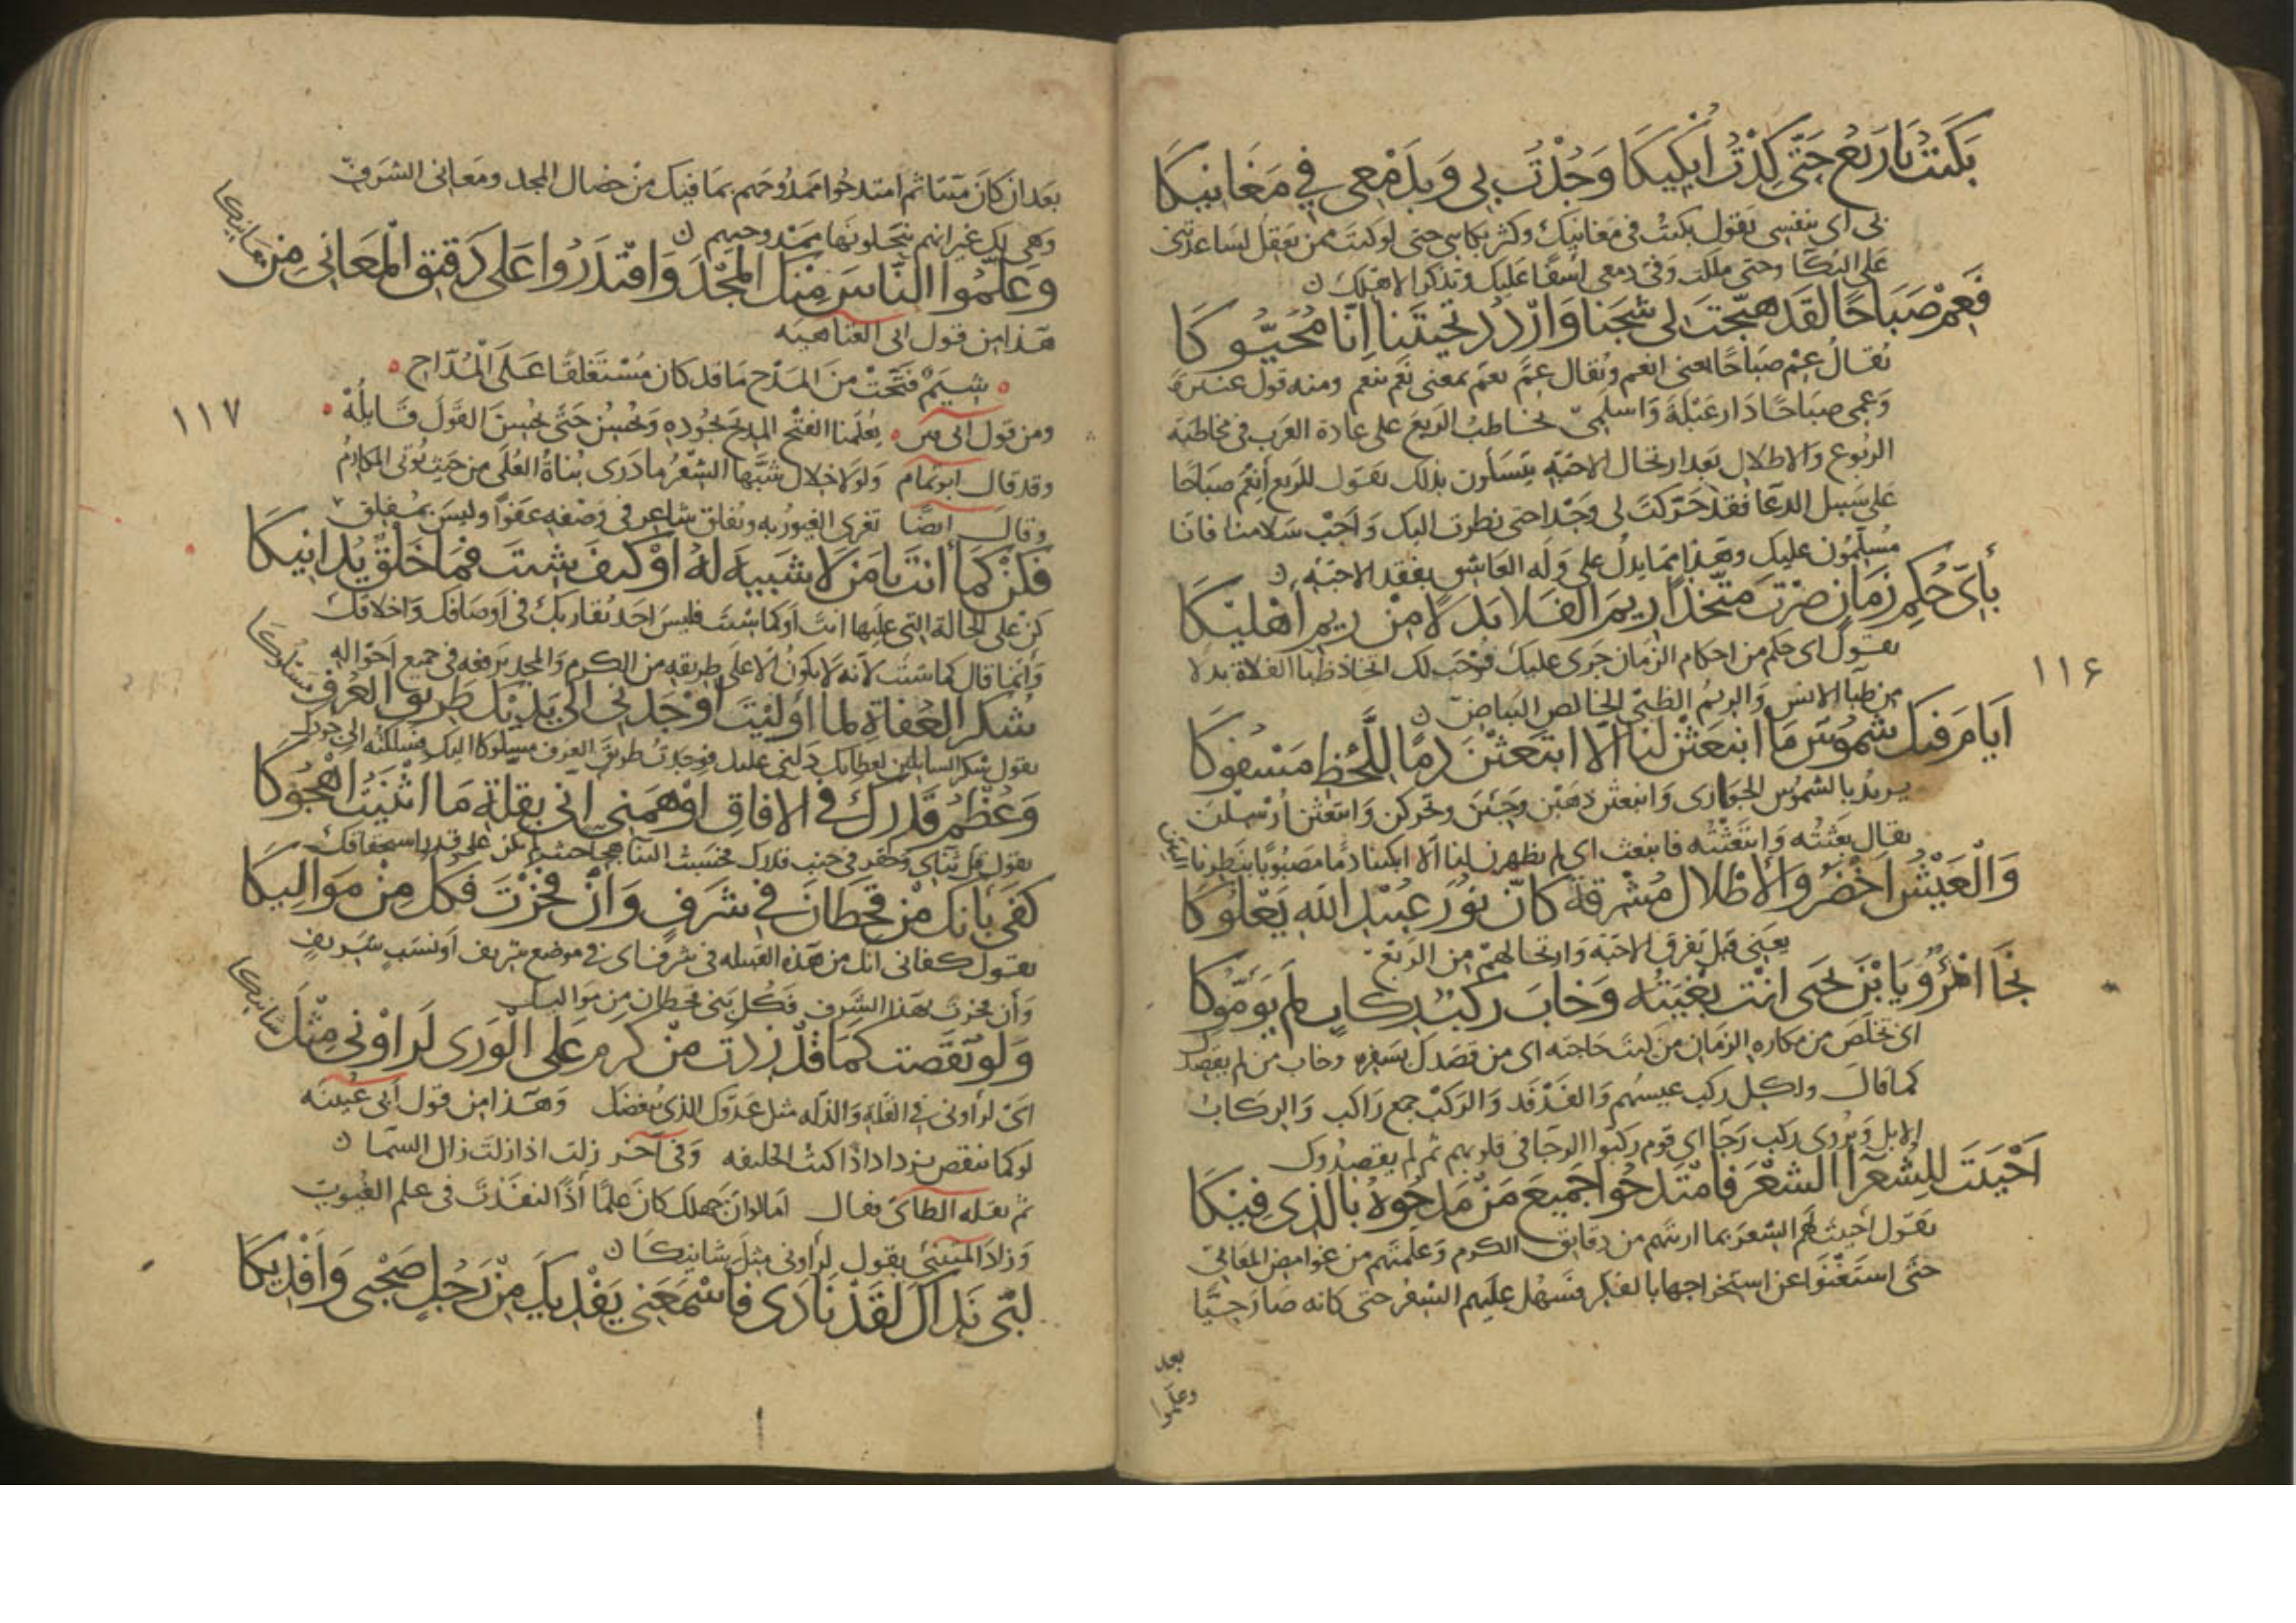 بَكَيْتُ يَا رَبْعُ حَتَّى كِدْتُ أُبْكِيكَا وَجُدْتُ بِي وَبِدَمْعِي فِي مَغَانِيكَا
بى اى بنفسى يقول بكيت فى مغانيك وكثر بكاى حتى لو كنت ممن يعقل لساعدتنى
على البكا وحتى هلكت وفنى دمعى اسفا عليك وتذكرا لاهلك ن
فَعِمْ صَبَاحًا لَقَدْ هَيَّجْتَ لِي شَجَنًا وَارْدُدْ تَحِيَّتَنَا إِنَّا مُحَيُّوكَا
يُقال عِمْ صباحًا بمعنى انعم ويُقال عم يعم بمعنى نعم ينعم ومنه قول عنترة
وَعِمِى صباحًا دار عبلة واسلمى يخاطب الربع على عادة العرب فى مخاطبة
الربوع والاطلال بعد ارتحال الاحبة يتسلون بذلك يقول للربع انعم صباحا
على سبيل الدعا فقد حركت لى وجدا حتى نظرت اليك واجب سلامنا فانا
مُسلّمُون عليك وهذا مما يدل على وله العاشق بفقد الاحبة ن
بِأَيِّ حُكْمِ زَمَانٍ صِرْتَ مُتَّخِذًا رِيمَ الْفَلَا بَدَلًا مِنْ رِيمِ أَهْلِيكَا
يقول اى حكم من احكام الزمان جرى عليك فوجب لك اتخاذ ظبا الفلاة بدلا
من ظبا الانس والريم الظبى الخالص البياض ن
١١۶
أَيَّامَ فِيكَ شُمُوسٌ مَا انْبَعَثْنَ لَنَا إِلَّا ابْتَعَثْنَ دَمًا بِاللَّحْظِ مَسْفُوكَا
يريد بالشموس الجوارى وانبعثن ذهبن وجئن وتحركن وابتعثن ارسلن
يقال بعثته وابتعثته فانبعث اى لم يظهرن لنا الا ابكيننا دما مصبوبا بنظرنا اليهن
وَالْعَيْشُ أَخْضَرُ وَالْأَطْلَالُ مُشْرِقَةٌ كَأَنَّ نُورَ عُبَيْدِ اللهِ يَعْلُوكَا
يعنى قبل تفرق الاحبة وارتحالهم من الربع
نَجَا امْرُؤٌ يَا بْنَ يَحْيَى أَنْتَ بُغْيَتُهُ وَخَابَ رَكْبُ رِكَابٍ لَمْ يَؤُمُّوكَا
اى تخلص من مكاره الزمان من كنت حاجته اى من قصدك بسفره وخاب من لم يقصدك
كما قال ولكل ركب عيسهم والفدفد والركب جمع راكب والركاب
الابل ويروى ركب رجا اى قوم ركبوا الرجا فى قلوبهم ثم لم يقصدوك
أَحْيَيْتَ لِلشُّعَرَآ الشِّعْرَ فَامْتَدَحُوا جَمِيعَ مَنْ مَدَحُوهُ بِالَّذِي فِيكَا
يقول احييت لهم الشعر بما اريتهم من دقايق الكرم وعلمتهم من غوامض المعالى
حتى استغنوا عن استخراجها بالفكر فسهل عليهم الشعر حتى كانه صار حيًّا
بعد
وعلّموا
بعد ان كان ميتا ثم امتدحوا ممدوحهم بما فيك من خصال المجد ومعانى الشرف
وهى لك غير انهم ينحلونها ممدوحيهم ن
وَعَلَّمُوا النَّاسَ مِنْكَ الْمَجْدَ وَاقْتَدَرُوا عَلَى دَقِيقِ الْمَعَانِي مِنْ مَعَانِيكَا
هذا من قول ابى العتاهيه
شِيَمٌ فَتَّحَتْ مِنَ الْمَدْحِ مَا قَدْ كَانَ مُسْتَغْلِقًا عَلَى الْمُدَّاحِ
١١٧
ومن قول ابى يعلمنا الفتح المديح بجوده ويحسن حتى يحسن القول قايله
وقد قال ابو تمام ولولا خلال سنها الشعر ما درى بناة العلى من حيث توتى المكارم
وقال ايضا تغرى العيون به ويفلق شاعر فى وصفه عفوا وليس بمفلق
فَكُنْ كَمَا أَنْتَ يَا مَنْ لَا شَبِيهَ لَهُ أَوْ كَيْفَ شِئْتَ فَمَا خَلْقٌ يُدَانِيكَا
كن على الحالة التى عليها انت او كما شئت فليس احد يقاربك فى اوصافك واخلاقك
وانما قال كما شئت لانه لا يكون الا على طريقه من الكرم والمجد يرفعه فى جميع احواله
شُكْرُ الْعُفَاةِ لِمَا أَوْلَيْتَ أَوْجَدَنِي إِلَى يَدَيْكَ طَرِيقَ الْعُرْفِ مَسْلُوكَا
يقول شكر السايلين لعطايك دلنى عليك فوجدت طريق العرف مسلوكا اليك فسلكته الى جودك
وَعُظْمُ قَدْرِكَ فِي الْآفَاقِ أَوْهَمَنِي أَنِّي بِقِلَّةِ مَا أَثْنَيْتُ أَهْجُوكَا
يقول قل ثناى وحقر فى جنب قدرك فحسبت الثنا هجا حيث لم يكن على قدر استحقاقك
كَفَى بِأَنَّكَ مِنْ قَحْطَانَ فِي شَرَفٍ وَإِنْ فَخَرْتَ فَكُلٌّ مِنْ مَوَالِيكَا
يقول كفانى انك من هذه القبيله فى شرف اى فى موضع شريف او نسب شريف
وان فخرت بهذا الشرف فكل بنى قحطان من مواليك
وَلَوْ نَقَصْتُ كَمَا قَدْ زِدْتَ مِنْ كَرَمٍ عَلَى الْوَرَى لَرَأَوْنِي مِثْلَ شَانِيكَا
اى لراونى فى القلة والذله مثل عدوك الذى يبغضك وهذا من قول ابى عيينه
لو كما تنقص تزداد اذا كنت الخليفه وفى آخر زلت اذا زلت زال السما ن
ثم نقله الطاى فقال اما لو ان جهلك كان علما اذًا لنفذت فى علم الغيوب
وزاد المتنبى بقول لراونى مثل شانيكا ن
لَبَّى نَدَاكَ لَقَدْ نَادَى فَأَسْمَعَنِي يَفْدِيكَ مِنْ رَجُلٍ صَحْبِي وَأَفْدِيكَا